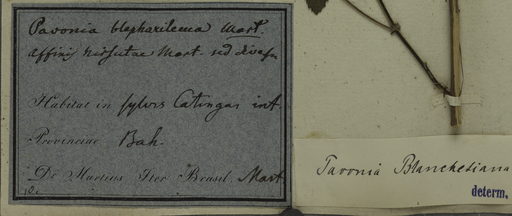 Pavonia blepharilema Mart.
Affinis hirsutae Mart. sed diversa
Habitat in sylvis Catingas int.
Provinciae Bah.
De Martius Iter Brasil. Mart.
Pavonia Blanchetiana
determ.